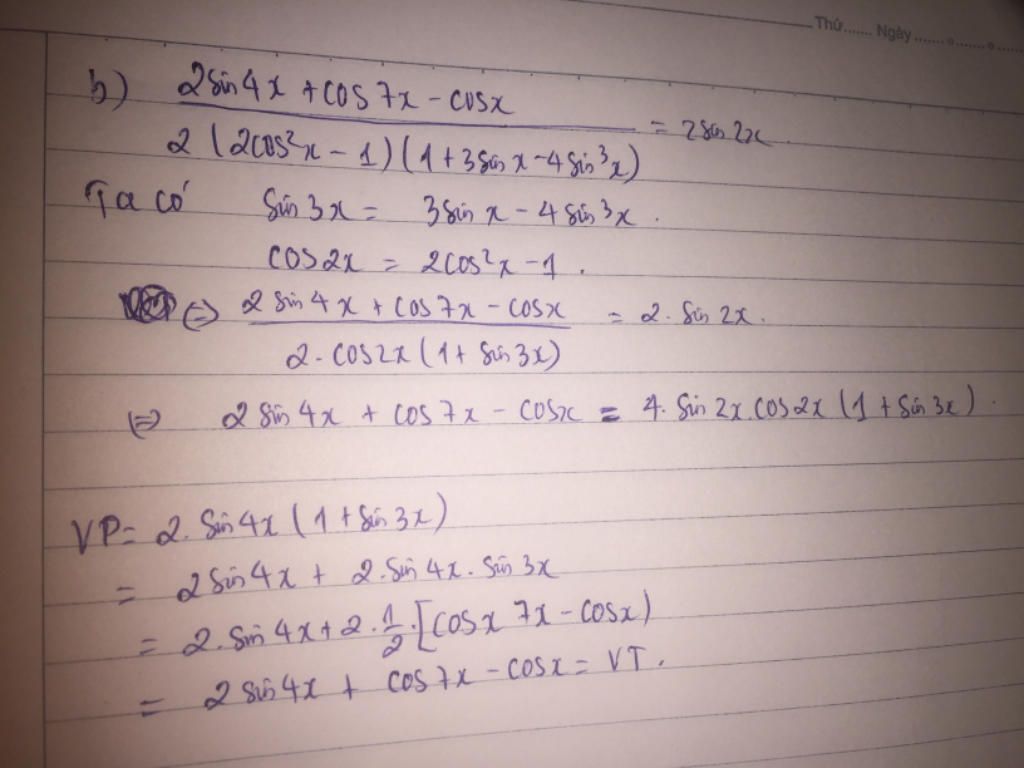 Thứ....... Ngày.......o.......o.......
b) (2sin4x + cos7x - cosx) / (2(2cos²x - 1)(1 + 3sinx - 4sin³x)) = 2sin2x.
Ta có sin3x = 3sinx - 4sin³x.
cos2x = 2cos²x - 1.
⇔ (2sin4x + cos7x - cosx) / (2.cos2x(1 + sin3x)) = 2.sin2x.
⇔ 2sin4x + cos7x - cosx = 4.sin2x cos2x(1 + sin3x).
VP = 2.sin4x(1 + sin3x)
= 2sin4x + 2.sin4x.sin3x
= 2.sin4x + 2.1/2.[cosx 7x - cosx)
= 2sin4x + cos7x - cosx = VT.